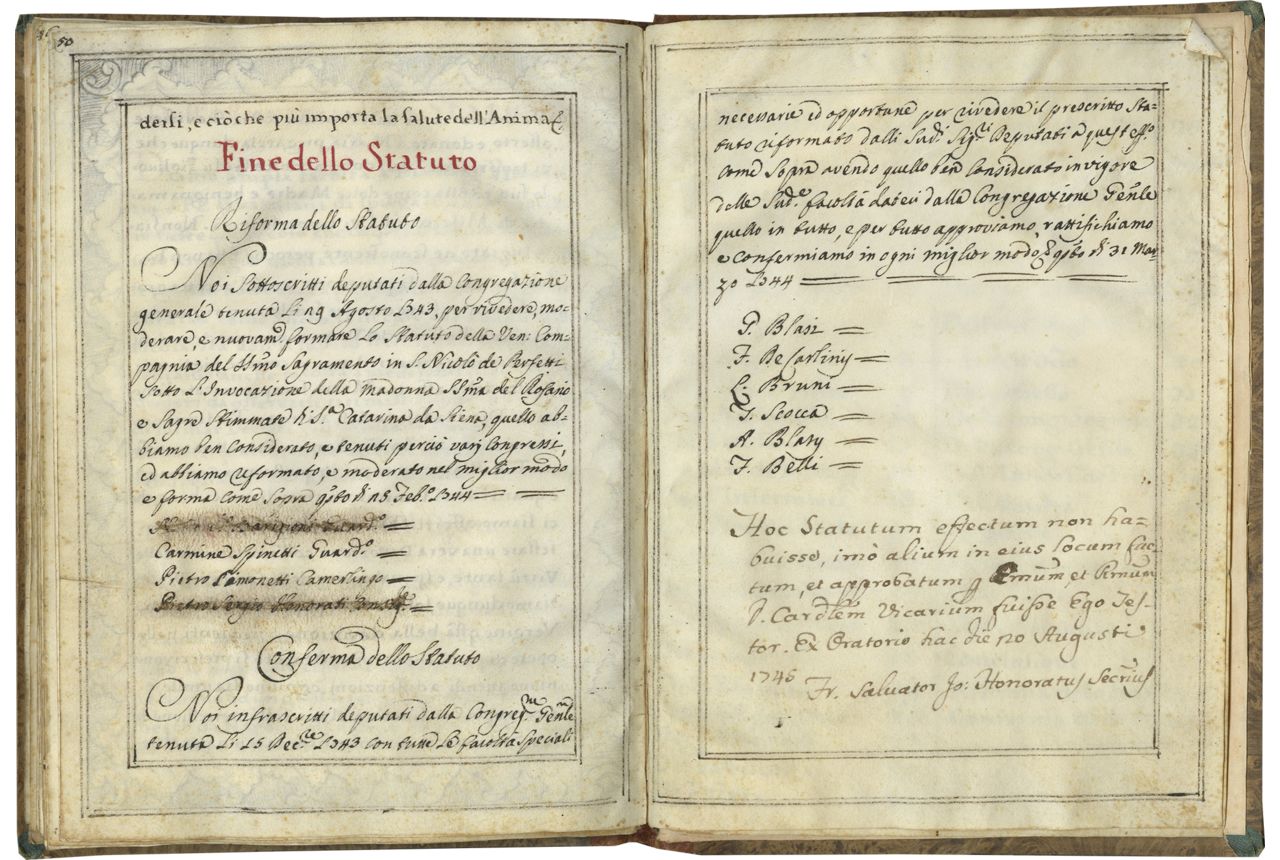 50
dersi, e ciò che più importa la salute dell'Anima
Fine dello Statuto
Riforma dello Statuto
Noi Sottoscritti deputati dalla Congregazione
generale tenuta li 19 Agosto 1343, per rivedere, mo=
derare, e nuovam.e formare lo Statuto della Ven: Com=
pagnia del SSmo Sagramento in S. Nicolò de Perfetti
sotto l'Invocazione della Madonna SSma del Rosario
e Sagre Stimmate di S.a Catarina da Siena, quello ab=
biamo ben Considerato, e tenuti perciò varj Congressi,
ed abbiamo riformato, e moderato nel miglior modo
e forma come sopra qsto dì 15 Feb.o 1344
Guard.o
Carmine Spinetti Guard.o
Pietro Simonetti Camerlingo
Pietro Sergio Honorati
Conferma dello Statuto
Noi infrascritti deputati dalla Congreg.ne Genle
tenuta li 15 Dec.re 1343 con tutte le facoltà speciali
necessarie ed opportune per rivedere il prescritto Sta=
tuto riformato dalli Sud.i Sig.ri Deputati a quest'eff.o
come sopra avendo quello ben considerato in vigore
delle Sud.e facoltà dateci dalla Congregazione Genle
quello in tutto, e per tutto approviamo, rattifichiamo
e confermiamo in ogni miglior modo qsto dì 31 Mar=
zo 1344
P. Blasi
F. De Sartiny
C. Bruni
F. Scocca
A. Blasy
F. Belli
Hoc Statutum effectum non ha=
buisse, imò alium in eius locum fac=
tum, et approbatum p Emum, et Rmum
D. Cardlem Vicarium fuisse Ego Tes-
tor. Ex Oratorio hac die no Augusti
1745
Fr. Salvator Jo: Honoratus Secrius